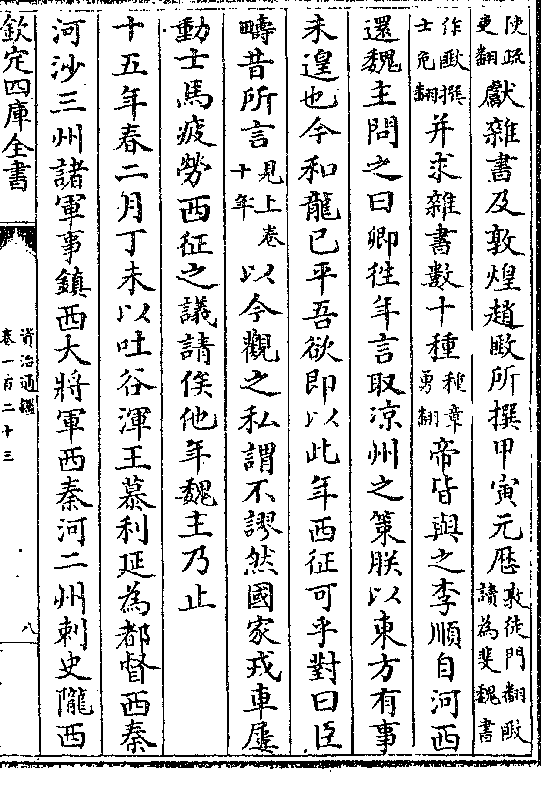 使疏吏翻獻雜書及敦煌趙𢾺所撰甲寅元歴敦徒門翻𢾺讀為斐魏書
作𢾺撰士免翻并求雜書數十種種章勇翻帝皆與之李順自河西
還魏主問之曰卿往年言取凉州之策朕以東方有事
未遑也今和龍已平吾欲即以此年西征可乎對曰臣
疇昔所言見上卷十年以今觀之私謂不謬然國家戎車屢
動士馬疲勞西征之議請俟他年魏主乃止
十五年春二月丁未以吐谷渾王慕利延為都督西秦
河沙三州諸軍事鎮西大將軍西秦河二州刺史隴西
欽定四庫全書
資治通鑑
卷一百二十三
八